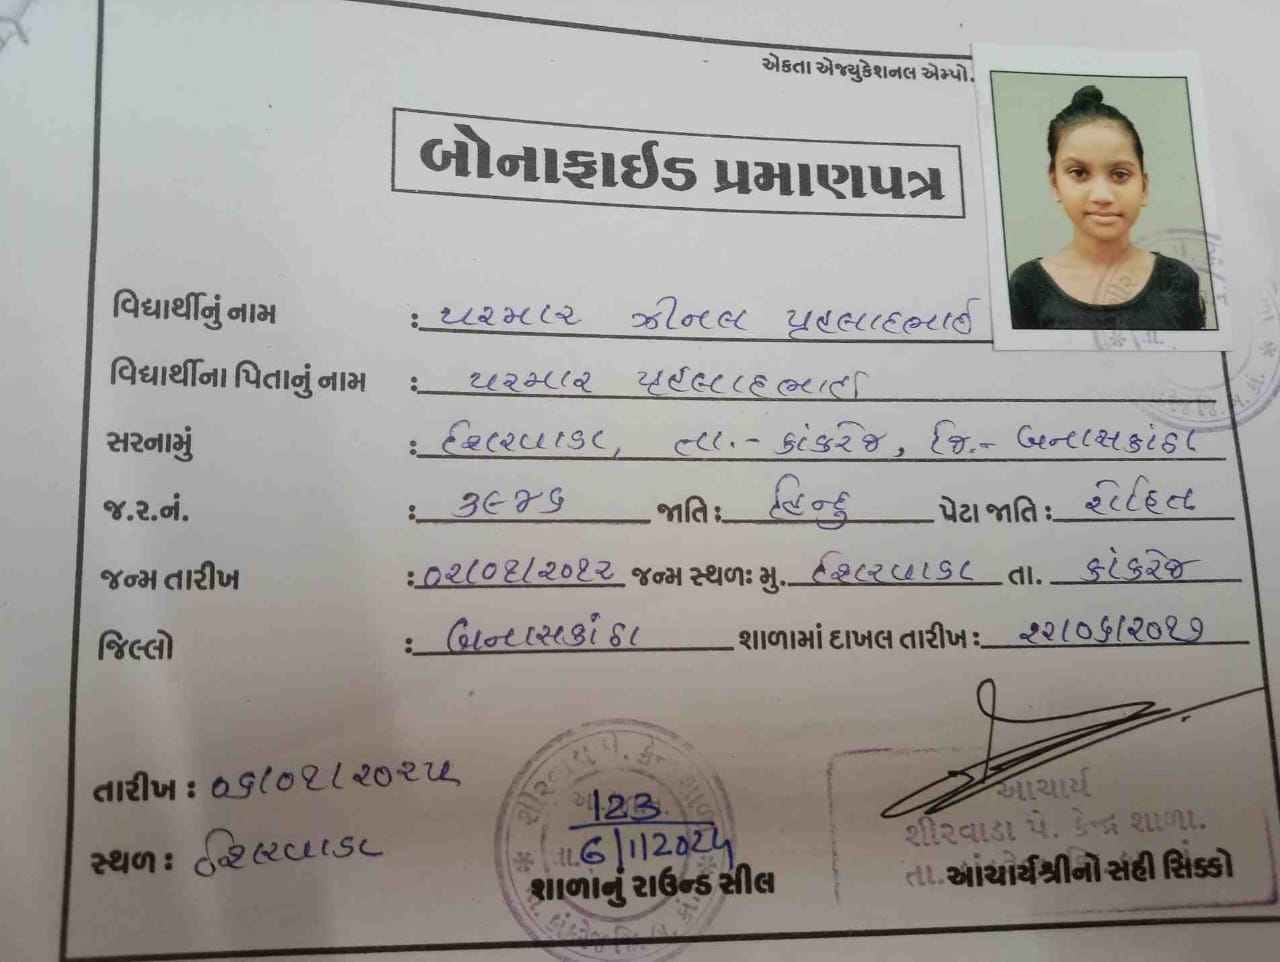 એકતા એજ્યુકેશનલ એમ્પો.
બોનાફાઈડ પ્રમાણપત્ર
વિદ્યાર્થીનું નામ : પરમાર ઝીનલ પ્રહલાદભાઈ
વિદ્યાર્થીના પિતાનું નામ : પરમાર પ્રહલાદભાઈ
સરનામું : શિરવાડા, તા.- કાંકરેજ, જિ.- બનાસકાંઠા
જ.ર.નં. : ૩૯૪૬ જાતિ : હિન્દુ પેટા જાતિ : રોહિત
જન્મ તારીખ : ૦૨/૦૧/૨૦૧૨ જન્મ સ્થળઃ મુ. શિરવાડા તા. કાંકરેજ
જિલ્લો : બનાસકાંઠા શાળામાં દાખલ તારીખ : ૨૨/૦૬/૨૦૧૭
તારીખ : ૦૬/૦૧/૨૦૨૫
સ્થળ : શિરવાડા
123
6/1/2025
શાળાનું રાઉન્ડ સીલ
આચાર્ય
શીરવાડા પે. કેન્દ્ર શાળા.
તા.
આચાર્યશ્રીનો સહી સિક્કો